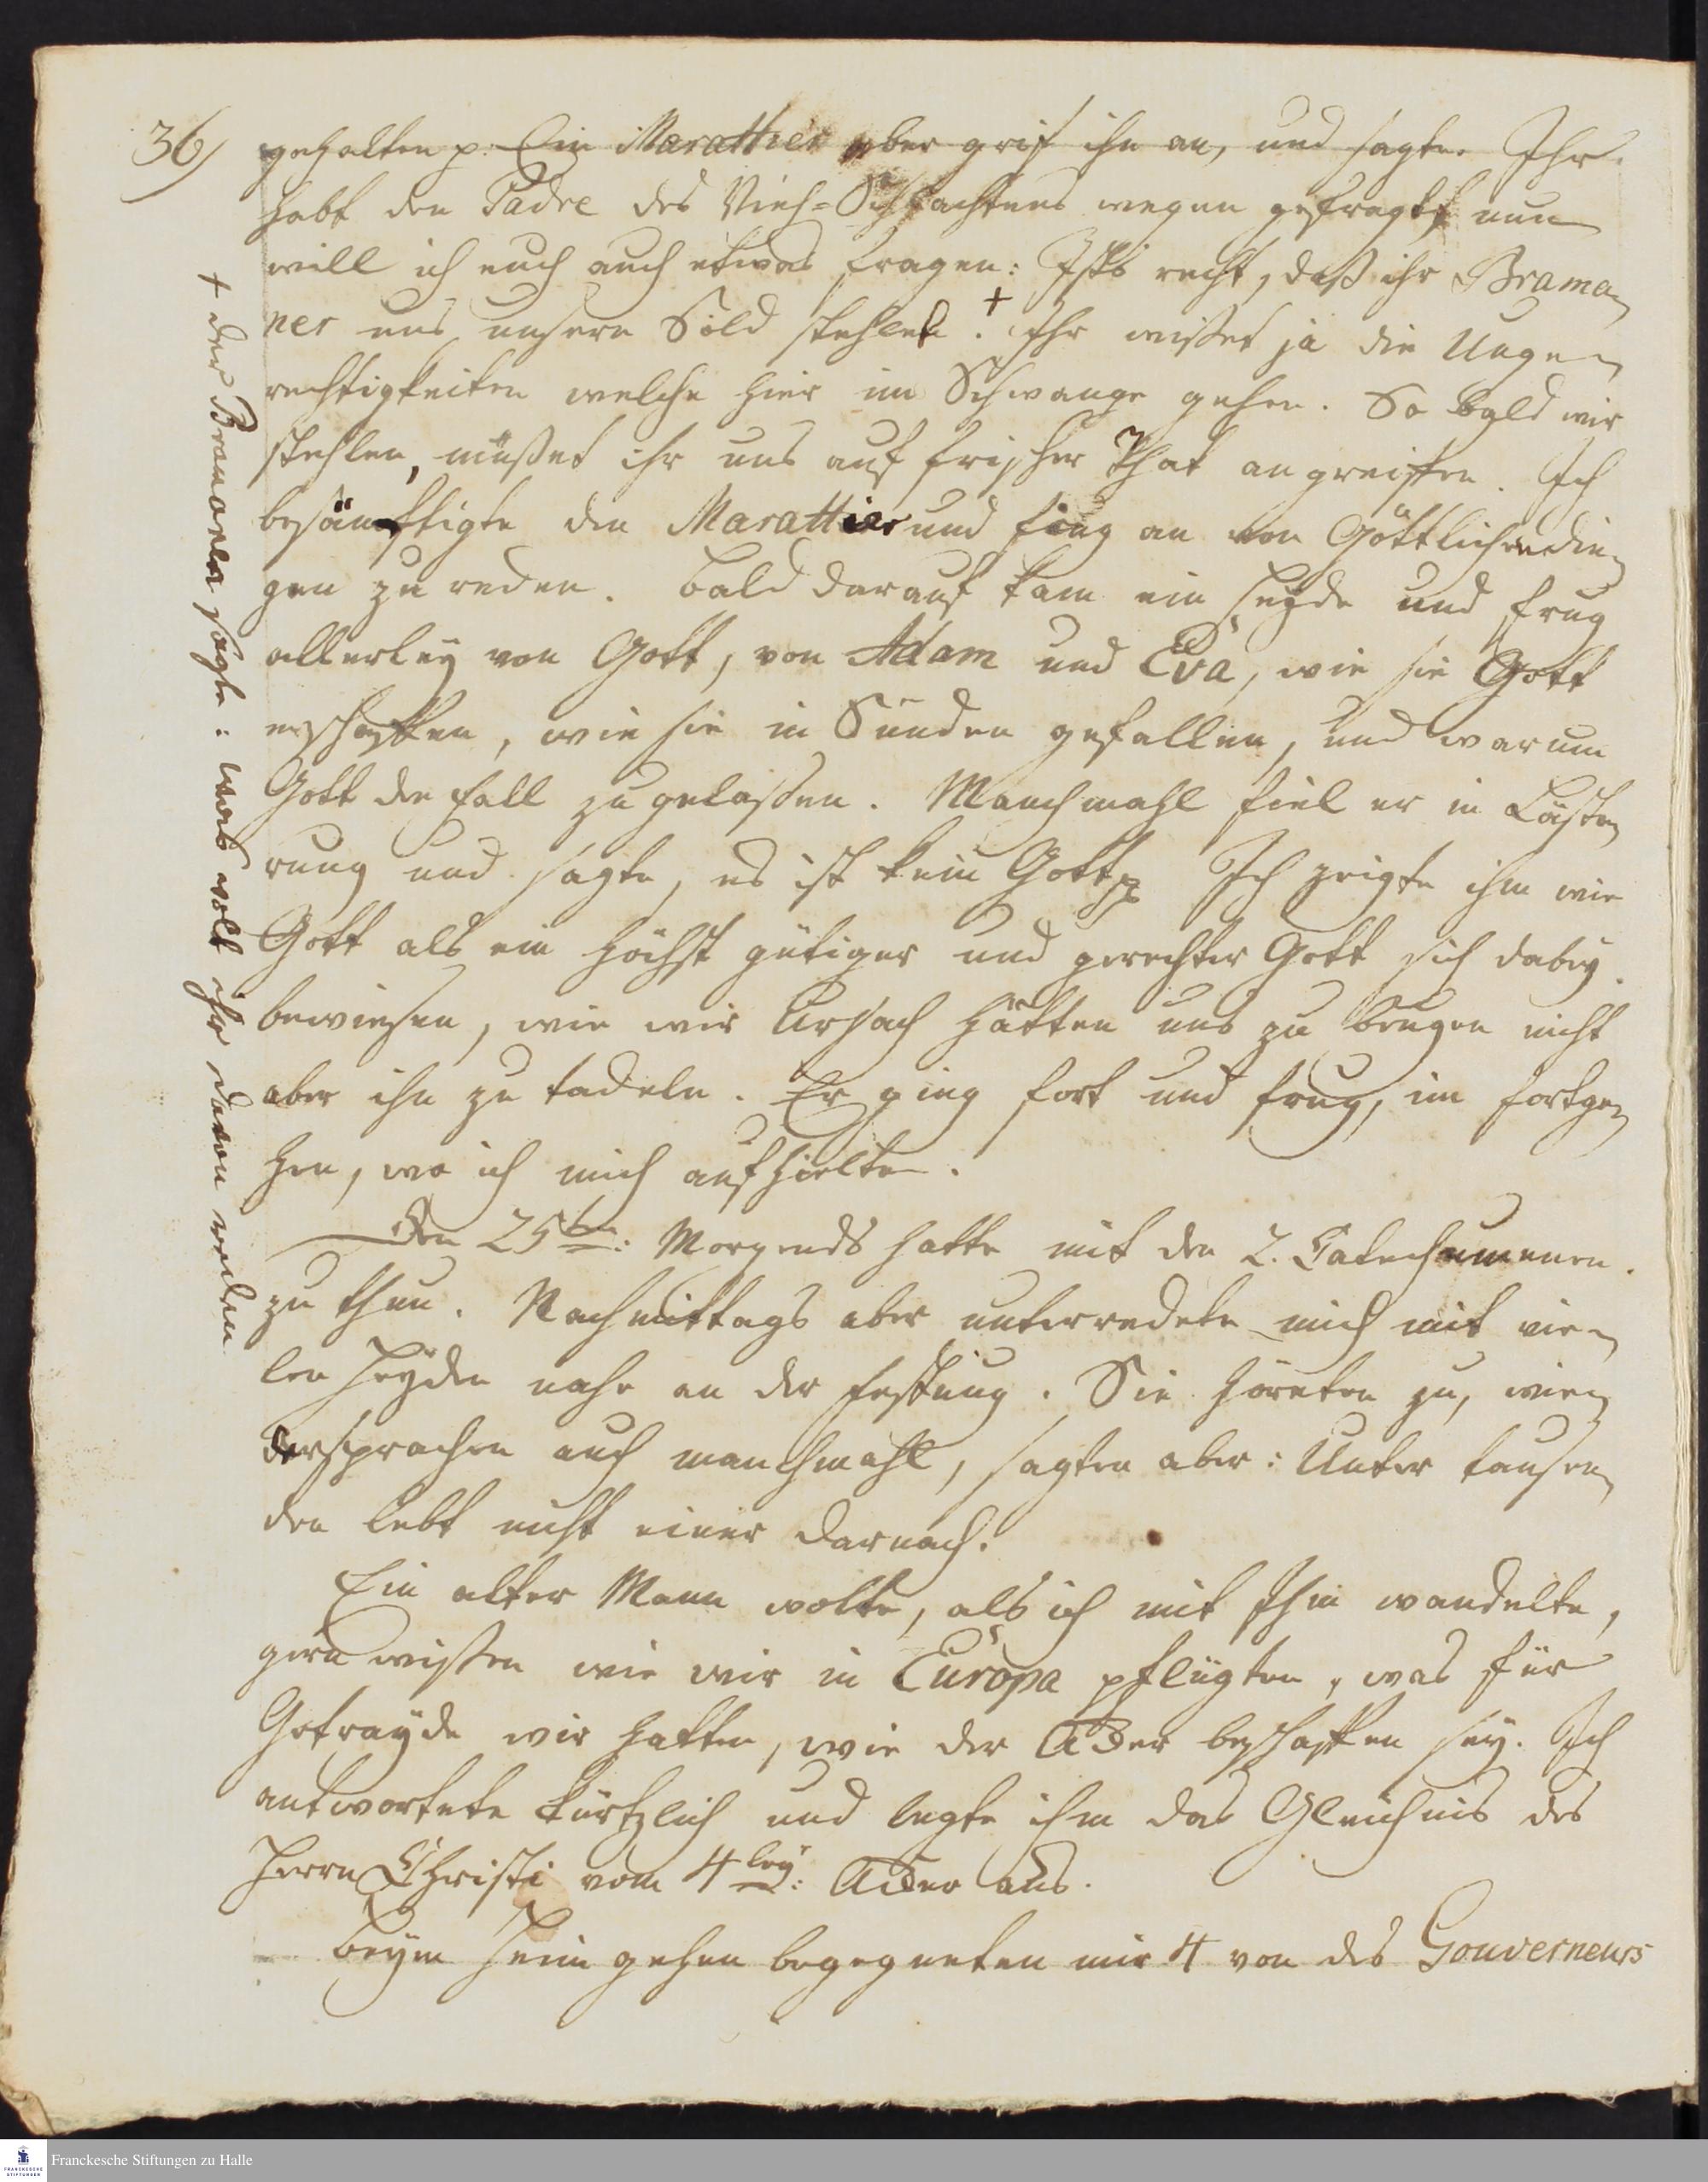 36)
gehalten p. Ein Marattier aber grif ihn an, und sagte. Ihr
habt den Padre des Vieh-Schlachtens wegen gefragt, nun
will ich euch auch etwas fragen: Ists recht, daß ihr Brama-
ner uns unsern Sold stehlet. + Ihr wißet ja die Unge-
rechtigkeiten welche hier im Schwange gehen. So bald wir
stehlen, müßet ihr uns auf frischer That angreiffen. Ich
besänfftigte den Marattier und fing an von Göttlichen din-
gen zu reden. Bald darauf kam ein Heyde und frug
allerley von Gott, von Adam und Eva, wie sie Gott
erschaffen, wie sie in Sünden gefallen, und warum
Gott den Fall zugelaßen. Manchmahl fiel er in Läste-
rung und sagte, es ist kein Gott p Ich zeigte ihm wie
Gott als ein höchst gütiger und gerechter Gott sich dabey
bewiesen, wie wir Ursach hätten uns zu beugen nicht
aber ihn zu tadeln. Er ging fort und frug, im fortge-
hen, wo ich mich aufhielte.
Den 25ten: Morgends hatte mit den 2. Catechumenen
zu thun. Nachmittags aber unterredete mich mit vie-
len Heyden nahe an der Festung. Sie höreten zu, wie-
dersprachen auch manchmahl, sagten aber: Unter tausen-
den lebt nicht einer darnach.
Ein alter Mann wolte, als ich mit Ihm wandelte,
gern wißen wie wir in Europa pflügten, was für
Getrayde wir hatten, wie der Acker beschaffen sey. Ich
antwortete kürtzlich und legte ihm das Gleichnis des
Herrn Christi vom 4ley: Acker aus.
Beym Heim gehen begegneten mir 4 von des Gouverneurs
+ der Bramaner sagte: was wolt ihr davon reden
Franckesche Stiftungen zu Halle